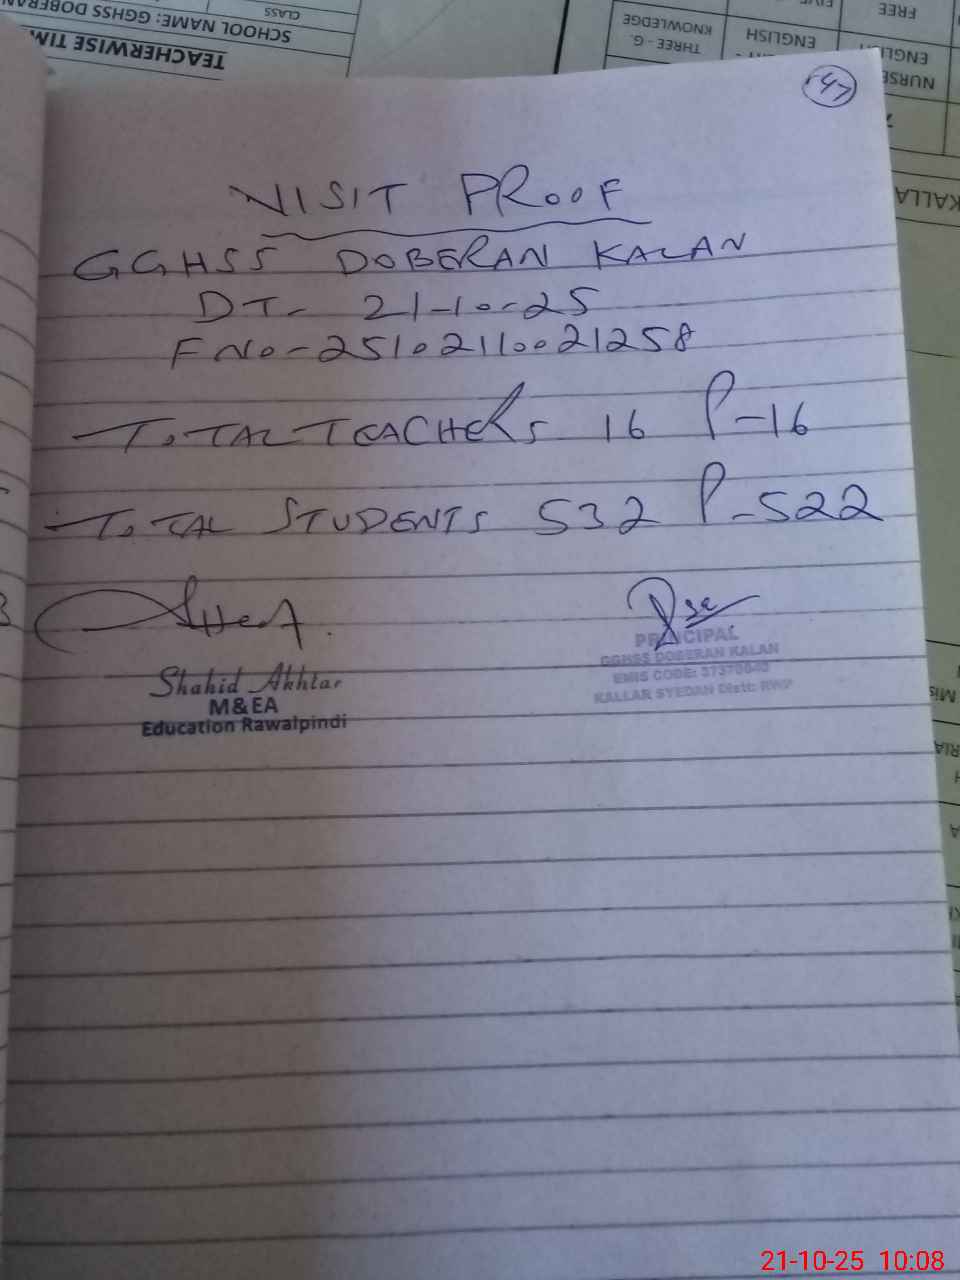 TEACHERWISE TIM
SCHOOL NAME: GGHSS DOBERAN
CLASS
THREE - G.
KNOWLEDGE
ENGLISH
FREE
ENGLISH
NURSE
KALLA
47
VISIT PROOF
GGHSS DOBERAN KALAN
DT- 21-10-25
F No- 25102110021258
TOTAL TEACHERS 16 P-16
TOTAL STUDENTS 532 P-522
Shahid Akhtar
M&EA
Education Rawalpindi
PRINCIPAL
GGHSS DOBERAN KALAN
EMIS CODE:
KALLAR SYEDAN Distt: RWP
21-10-25 10:08